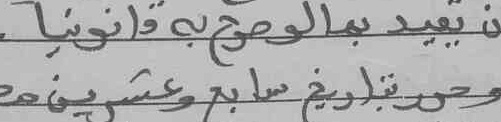 ن يفيد بما لوصرح به قانونيا.
وحرر بتاريخ سابع وعشرين